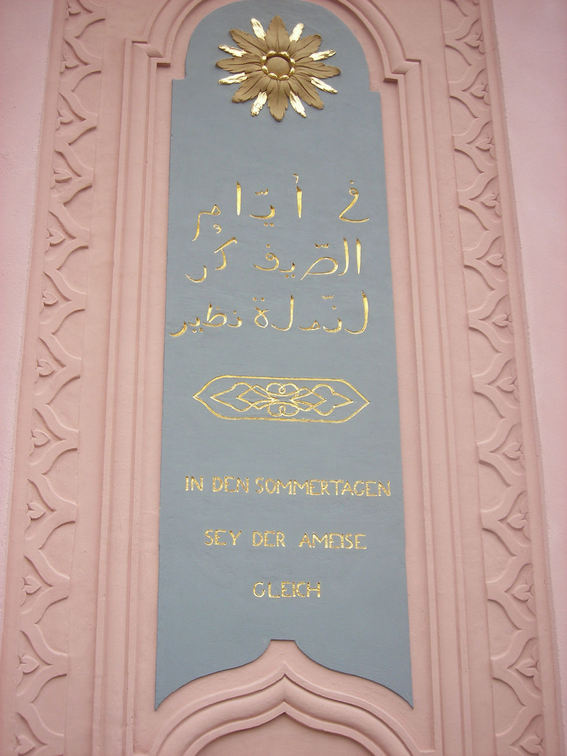 في أيّام
الصّيف كن
لنّملة نظير
IN DEN SOMMERTAGEN
SEY DER AMEISE
GLEICH